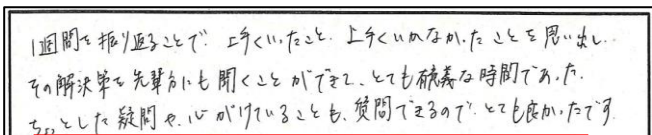 1週間を振り返ることで、上手くいったこと、上手くいかなかったことを思い出し、
その解決策を先輩方にも聞くことができて、とても有義な時間であった。
ちょっとした疑問や、心がけていることも、質問できるので、とても良かったです